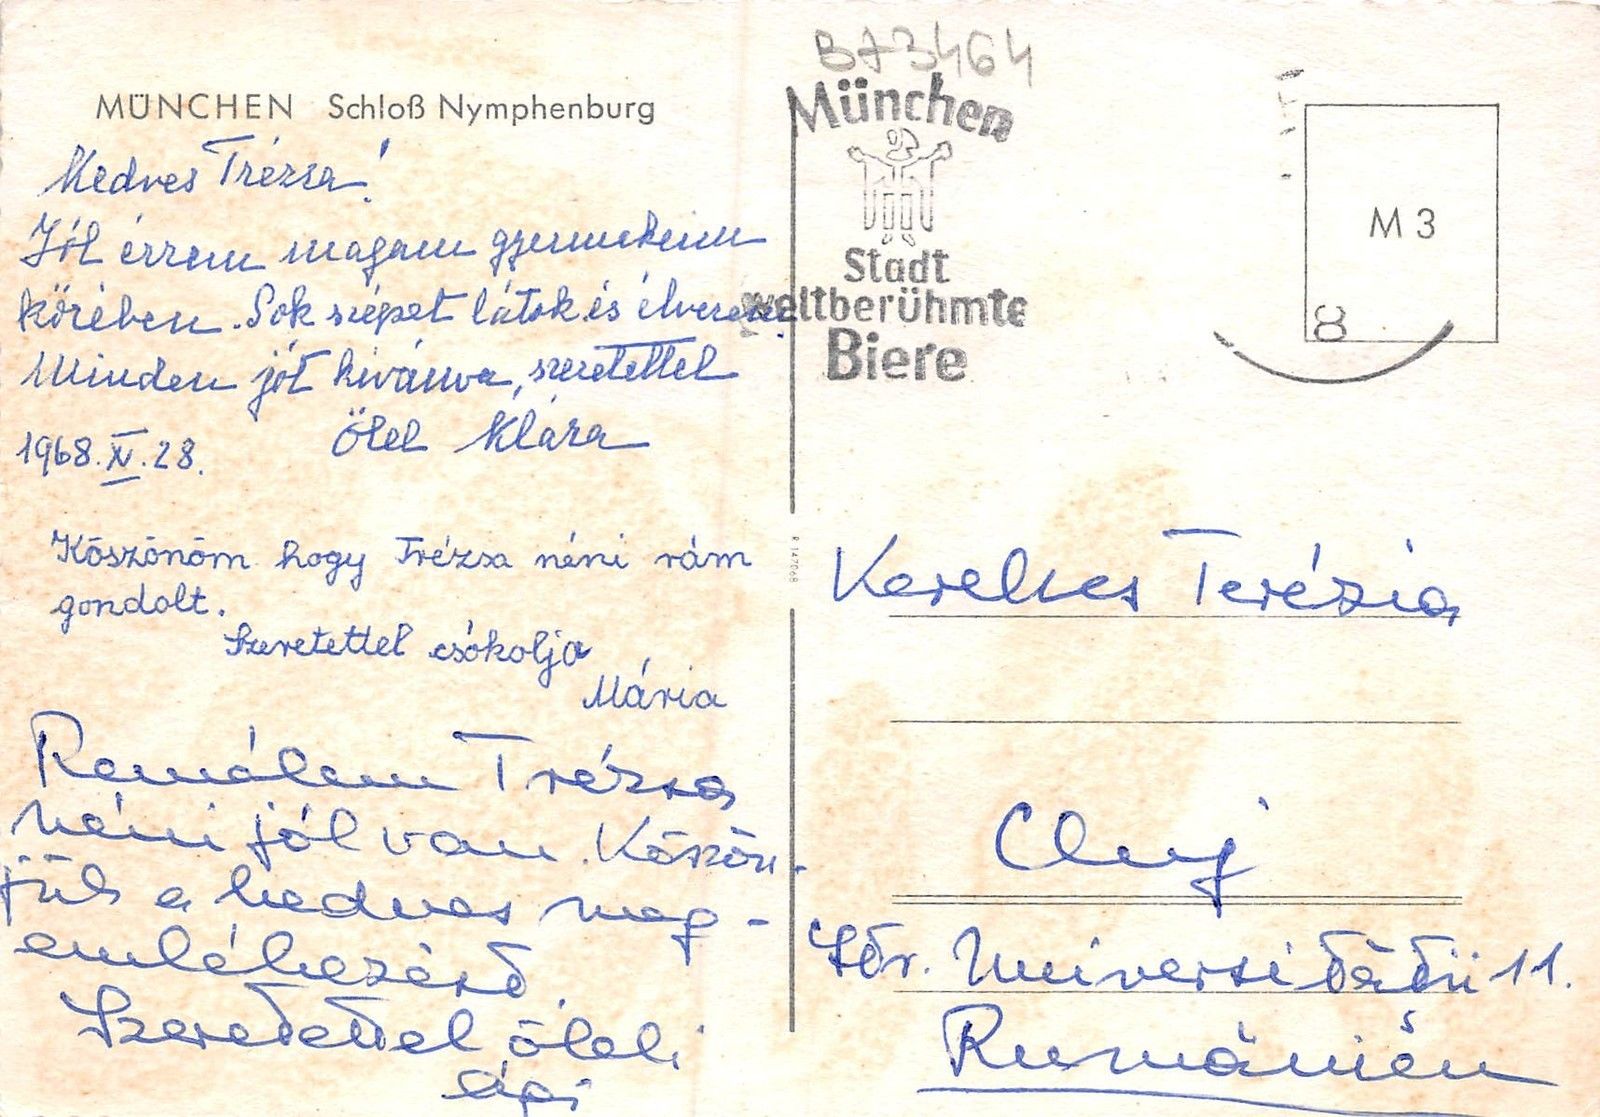 MÜNCHEN Schloß Nymphenburg
Kedves Trézsa!
Jól érzem magam gyermekeim
körében. Sok szépet látok és élvezek.
Minden jót kívánva, szeretettel
Ölel Klára
1968.XI.28.
Köszönöm hogy Trézsa néni rám
gondolt.
Szeretettel csókolja
Mária
Remélem Trézsa
néni jól van. Köszön-
jük a kedves meg-
emlékezést.
Szeretettel öleli
B73464
München
Stadt
weltberühmte
Biere
M 3
8
R 147068
Kerekes Terézia
Cluj
Str. Universitătii 11.
Rumänien